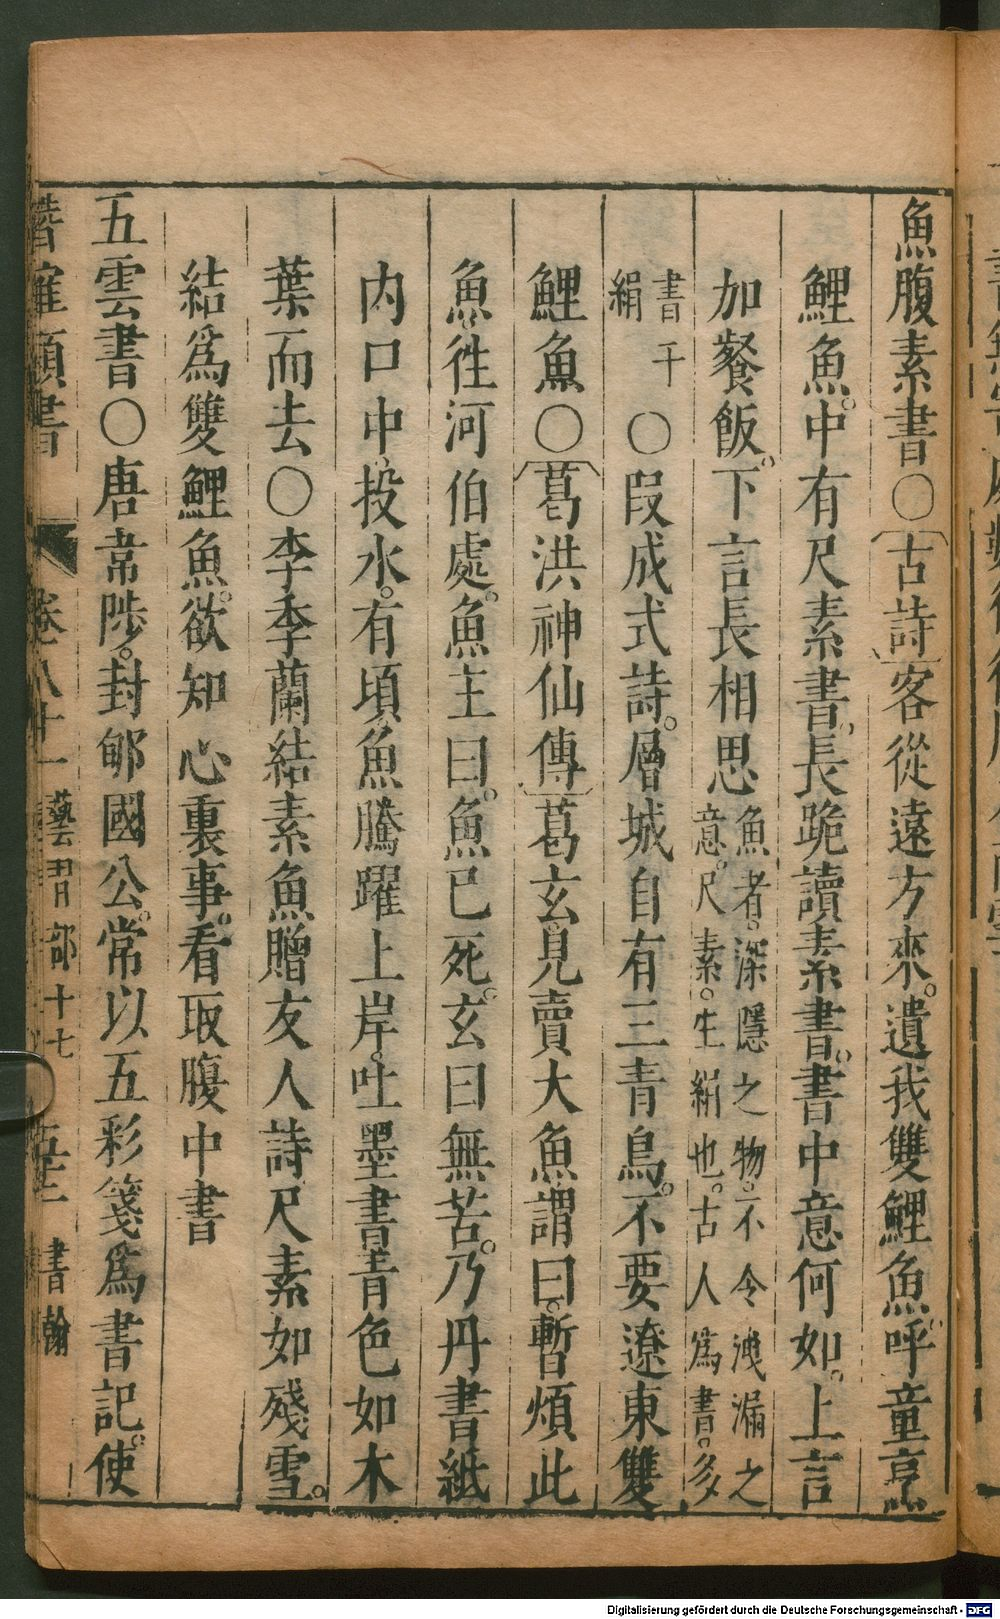 魚腹素書〇古詩客從遠方來。遺我雙鯉魚。呼童烹
鯉魚。中有尺素書。長跪讀素書。書中意何如。上言
加餐飯。下言長相思魚者。深隱之物。不令洩漏之
意。尺素。生絹也。古人為書。多
書于
絹〇段成式詩。層城自有三青鳥。不要遼東雙
鯉魚〇葛洪神仙傳葛玄。見賣大魚謂曰。暫煩此
魚。徃河伯處。魚主曰。魚已死。玄曰無苦。乃丹書紙
内口中。投水。有頃。魚騰躍上岸。吐墨書青色如木
葉而去〇李季蘭結素魚贈友人詩尺素如殘雪。
結爲雙鯉魚。欲知心裏事。看取腹中書
五雲書〇唐韋陟。封郇國公。常以五彩箋爲書記。使
卷八十一 藝習部十七 書翰
Digitalisierung gefördert durch die Deutsche Forschungsgemeinschaft - DFG